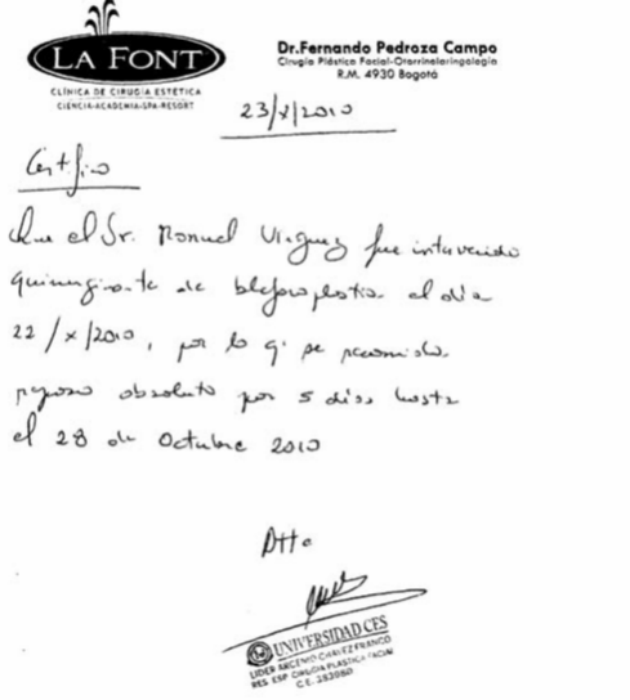 LA FONT
CLÍNICA DE CIRUGÍA ESTÉTICA
CIENCIA-ACADEMIA-SPA-RESORT
Dr.Fernando Pedroza Campo
Cirugía Plástica Facial-Otorrinolaringología
R.M. 4930 Bogotá
23/X/2010
Certifico
Que el Sr. Manuel fue intervenido
de blefaroplastia el día
22/X/2010, por lo q' se recomienda
reposo absoluto por 5 días hasta
el 28 de Octubre 2010
Atte
UNIVERSIDAD CES
LIDER ARCENIO CHAVEZ FRANCO
RES. ESP CIRUGIA PLASTICA FACIAL
C.E.